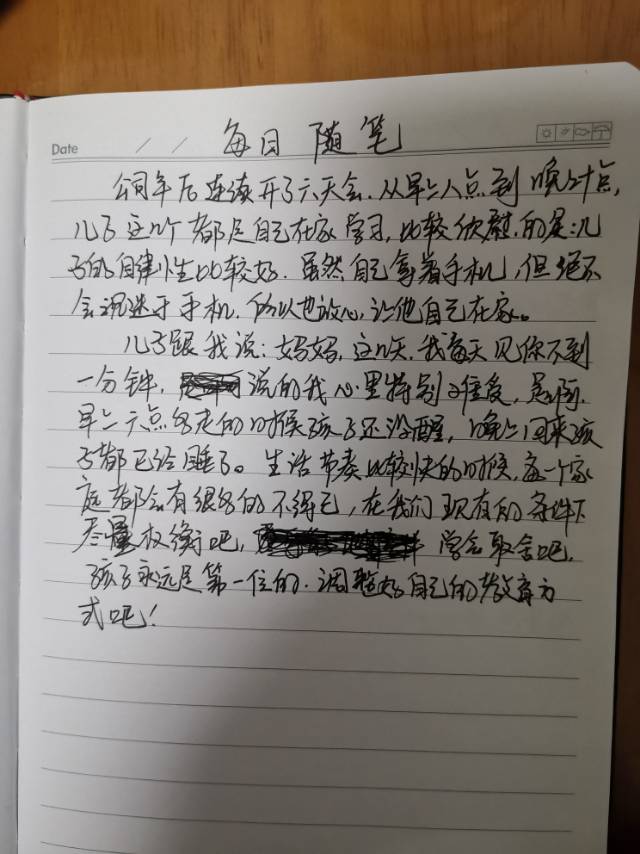 Date / / 每日随笔
公司年后连续开了六天会.从早上八点到晚上十点,
儿子这几个都是自己在家学习,比较欣慰.的是:儿
子的自律性比较好.虽然自己拿着手机,但绝不
会沉迷于手机,所以也放心,让他自己在家。
儿子跟我说:妈妈,这几天,我每天见你不到
一分钟, 说的我心里特别难受,是啊,
早上六点多走的时候孩子还没醒,晚上回来孩
子都已经睡了。生活节奏比较快的时候,每一个家
庭都会有很多的不得已,在我们现有的条件下
尽量权衡吧, 学会取舍吧,
孩子永远是第一位的.调整好自己的教育方
式吧!